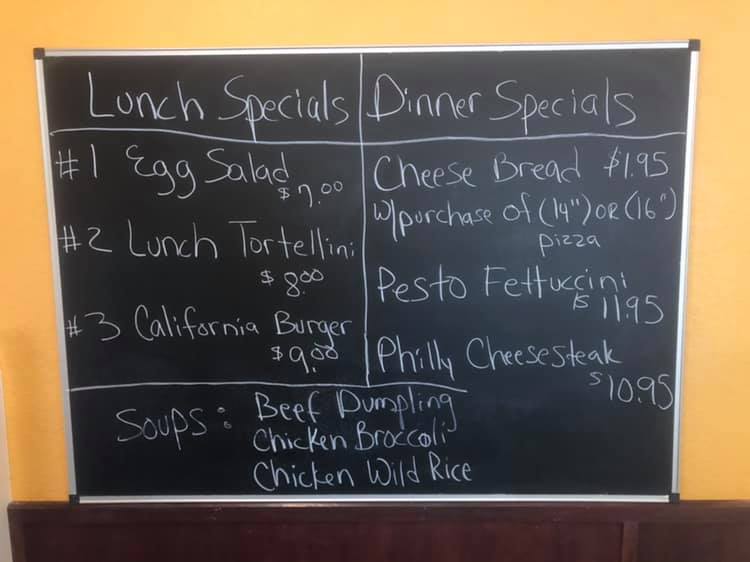 Lunch Specials
#1 Egg Salad
$7.00
#2 Lunch Tortellini
$8.00
#3 California Burger
$9.00
Dinner Specials
Cheese Bread $1.95
w/purchase of (14") OR (16")
pizza
Pesto Fettuccini
$11.95
Philly Cheesesteak
$10.95
Soups: Beef Dumpling
Chicken Broccoli
Chicken Wild Rice